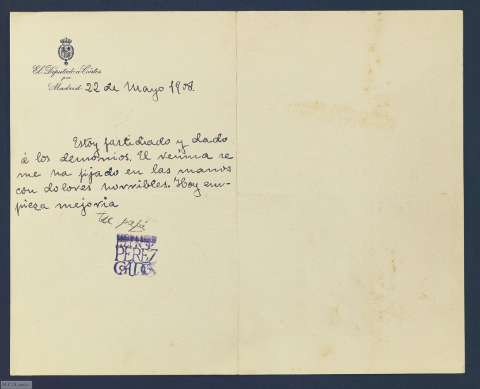 El Diputado a Cortes
por
Madrid 22 de Mayo 1908.
Estoy fastidiado y dado
á los demonios. El reúma se
me ha fijado en las manos
con dolores horribles. Hoy em-
pieza mejoria
Tu papá
PEREZ